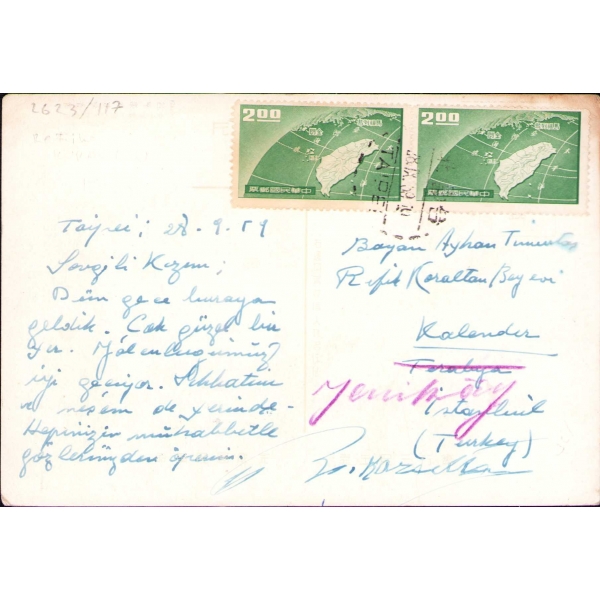 2623/117
2.00
2.00
中華民國郵票
中華民國郵票
TAIPEI
Taipei; 28-9-59
Sevgili Kızım;
Dün gece buraya
geldik. Çok güzel bir
yer. Yolculuğumuz
iyi geçiyor. Sıhhatim
ve neşem de yerinde-
Hepinizin muhabbetle
gözlerinizden öperim.
Bayan Ayhan Timurtaş
Refik Koraltan Beyevi
Kalender
Tarabya
Yeniköy
İstanbul
(Turkey)
R. Koraltan